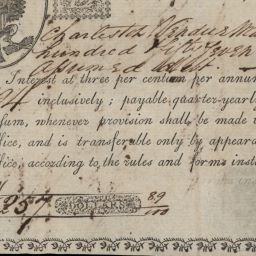 Charles
hundred Fifty Seven
Assumed Debt
Interest at three per centum per annum
94 inclusively; payable quarter-yearly
sum, whenever provision shall be made
fice, and is transferable only by appear
fice, according to the rules and forms inst
257. DOLLARS 89/100